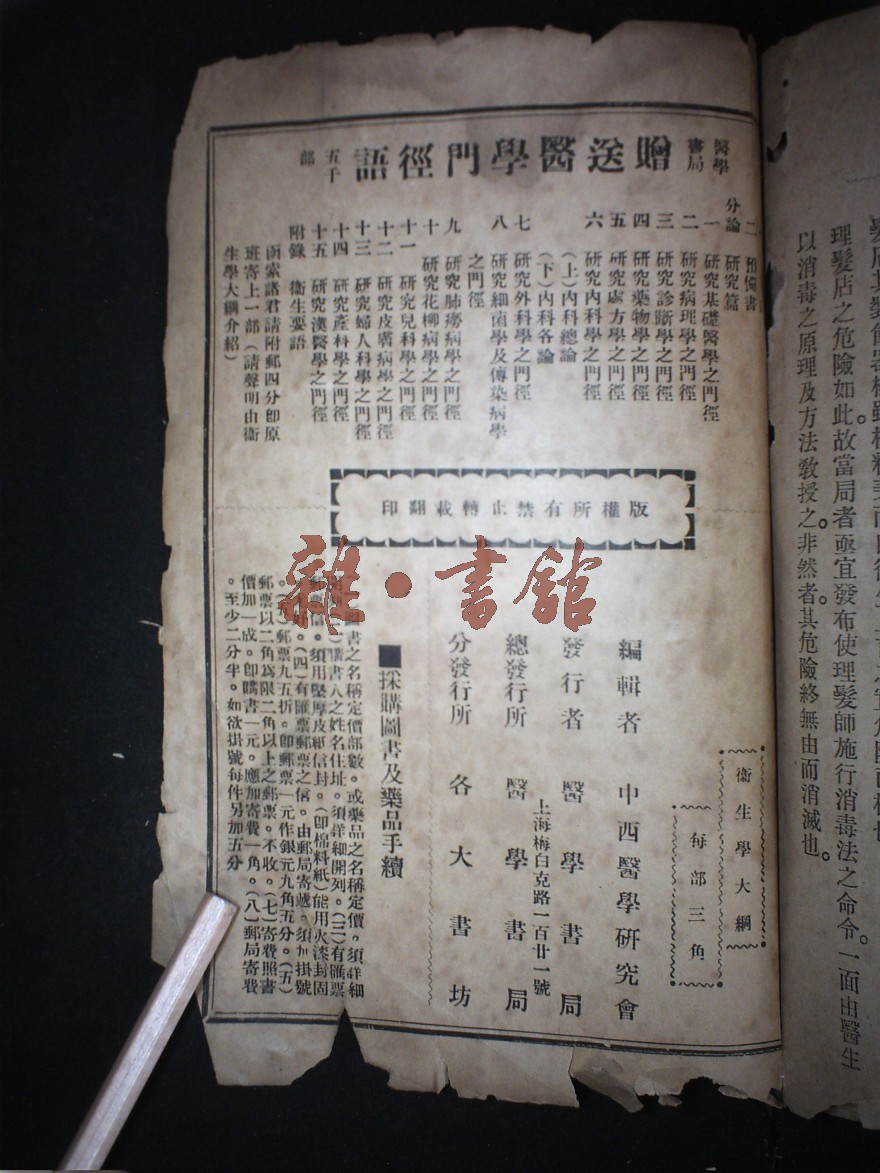 髮店其裝飾器械雖極精美而
理髮店之危險如此。故當局者亟宜發布使理髮師施行消毒法之命令。一面由醫生
以消毒之原理及方法教授之。非然者。其危險終無由而消滅也。
醫學書局
贈送醫學門徑語
五千部
二 預備書
分論 研究篇
一 研究基礎醫學之門徑
二 研究病理學之門徑
三 研究診斷學之門徑
四 研究藥物學之門徑
五 研究處方學之門徑
六 研究內科學之門徑
(上)內科總論
(下)內科各論
七 研究外科學之門徑
八 研究細菌學及傳染病學
之門徑
九 研究肺癆病學之門徑
十 研究花柳病學之門徑
十一 研究兒科學之門徑
十二 研究皮膚病學之門徑
十三 研究婦人科學之門徑
十四 研究產科學之門徑
十五 研究漢醫學之門徑
附錄 衛生要語
函索諸君請附郵四分卽原
班寄上一部(請聲明由衛
生學大綱介紹)
版權所有禁止轉載翻印
衛生學大綱
每部三角
編輯者 中西醫學研究會
發行者 醫學書局
上海梅白克路一百廿一號
總發行所 醫學書局
分發行所 各大書坊
■採購圖書及藥品手續
圖書之名稱定價部數。或藥品之名稱定價。須詳細
購書人之姓名住址。須詳細開列。(三)有匯票
郵票信。須用堅厚皮紙信封。(卽棉料紙)能用火漆封固
(四)有匯票郵票之信。由郵局寄遞。須加掛號
。(五)郵票九五折。卽郵票一元作銀元九角五分。(五)
郵票以二角爲限二角以上之郵票。不收。(七)寄費照書
價加一成。卽購書一元。應加寄費一角。(八)郵局寄費
。至少二分半。如欲掛號每件另加五分
雜·書館